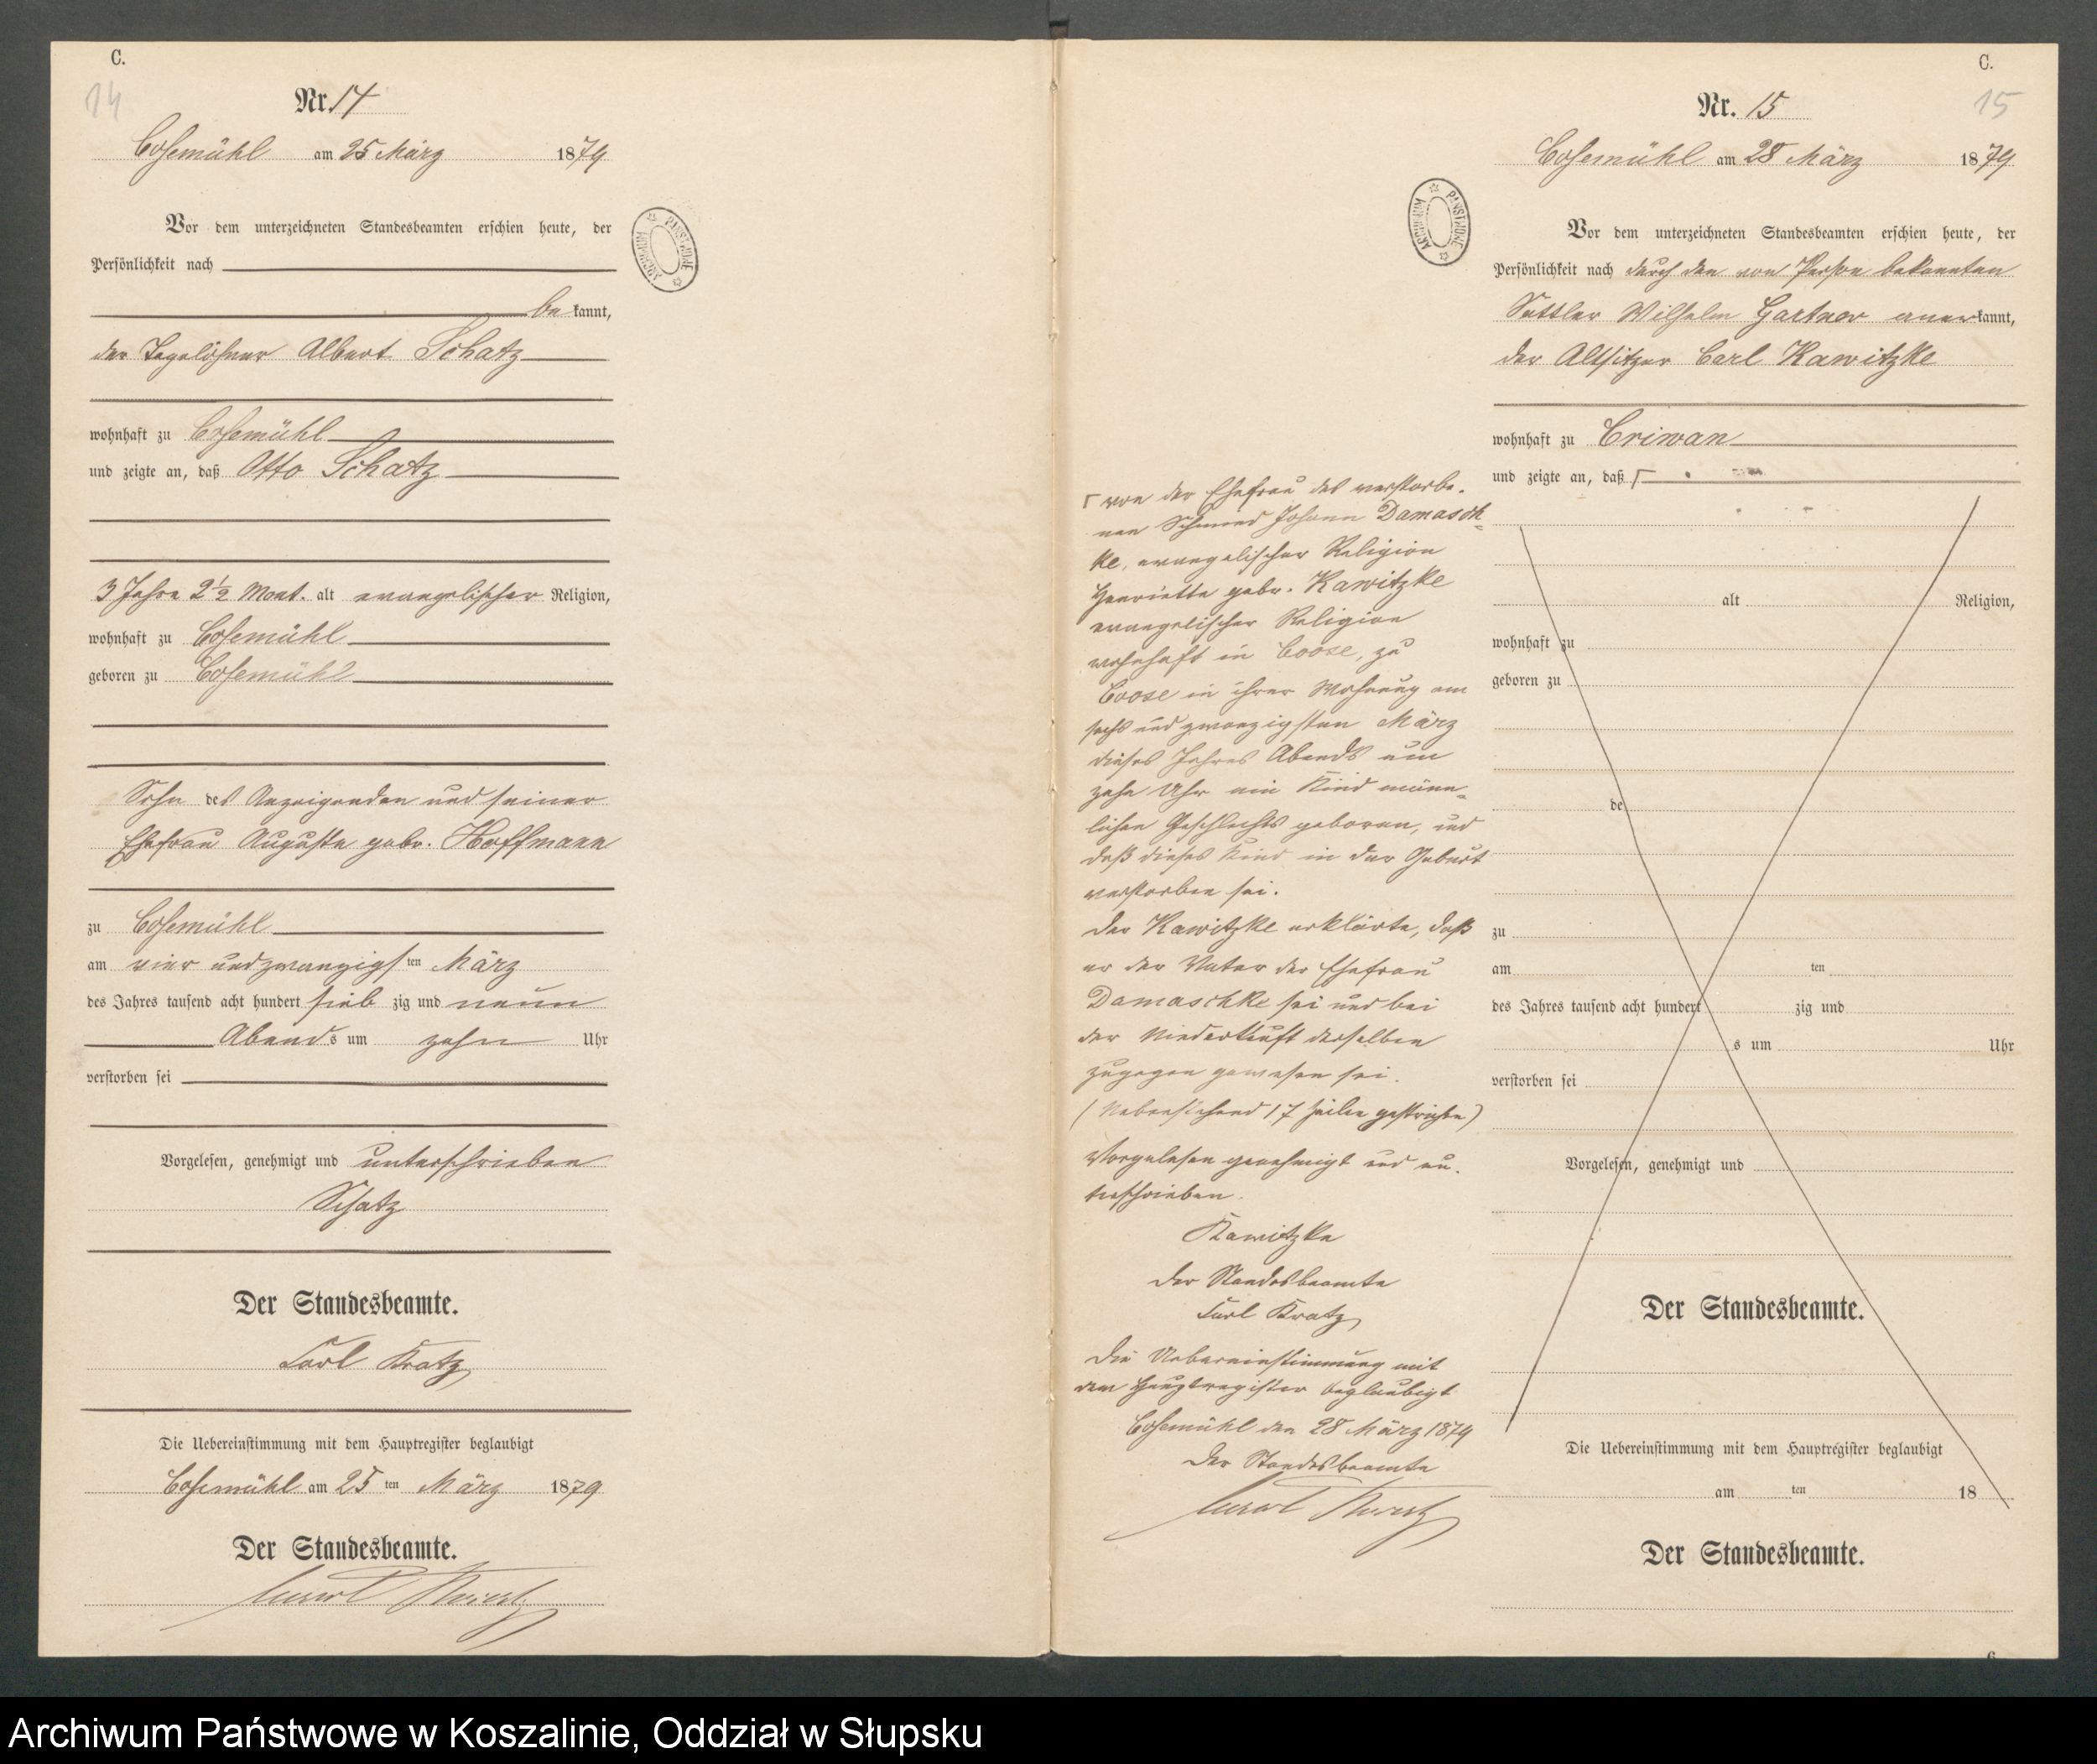 C.
14
Nr. 14
Cosemühl am 25 März 1879
Vor dem unterzeichneten Standesbeamten erschien heute, der
Persönlichkeit nach
be kannt,
der Tagelöhner Albert Schatz
wohnhaft zu Cosemühl
und zeigte an, daß Otto Schatz
3 Jahre 2½ Monat. alt evangelischer Religion,
wohnhaft zu Cosemühl
geboren zu Cosemühl
Sohn des Anzeigenden und seiner
Ehefrau Auguste gebr. Hoffmann
zu Cosemühl
am vier und zwanzigsten März
des Jahres tausend acht hundert sieb zig und neun
Abends um zehn Uhr
verstorben sei
Vorgelesen, genehmigt und unterschrieben
Schatz
Der Standesbeamte.
Carl Kratz
Die Uebereinstimmung mit dem Hauptregister beglaubigt
Cosemühl am 25 ten März 1879
Der Standesbeamte.
Carl Kratz
ARCHIWUM PAŃSTWOWE
C.
15
Nr. 15
Cosemühl am 28 März 1879
Vor dem unterzeichneten Standesbeamten erschien heute, der
Persönlichkeit nach durch den von Person bekannten
Sattler Wilhelm Gartner anerkannt,
der Altsitzer Carl Kawitzke
wohnhaft zu Criwan
und zeigte an, daß
alt Religion,
wohnhaft zu
geboren zu
de
zu
am ten
des Jahres tausend acht hundert zig und
s um Uhr
verstorben sei
Vorgelesen, genehmigt und
Der Standesbeamte.
Die Uebereinstimmung mit dem Hauptregister beglaubigt
am ten 18
Der Standesbeamte.
6
ARCHIWUM PAŃSTWOWE
von der Ehefrau des verstorbe-
nen Schmied Johann Damasch-
ke, evangelischer Religion
Henriette gebr. Kawitzke
evangelischer Religion
wohnhaft in Coose, zu
Coose in ihrer Wohnung am
sechs und zwanzigsten März
dieses Jahres Abends um
zehn Uhr ein Kind männ-
lichen Geschlechts geboren, und
daß dieses Kind in der Geburt
verstorben sei.
Der Kawitzke erklärte, daß
er der Vater der Ehefrau
Damaschke sei und bei
der Niederkunft derselben
zugegen gewesen sei.
(Nebenstehend 17 Zeilen gestrichen)
Vorgelesen genehmigt und un-
terschrieben.
Kawitzke
Der Standesbeamte
Carl Kratz
Die Uebereinstimmung mit
dem Hauptregister beglaubigt
Cosemühl den 28 März 1879
Der Standesbeamte
Carl Kratz
Archiwum Państwowe w Koszalinie, Oddział w Słupsku